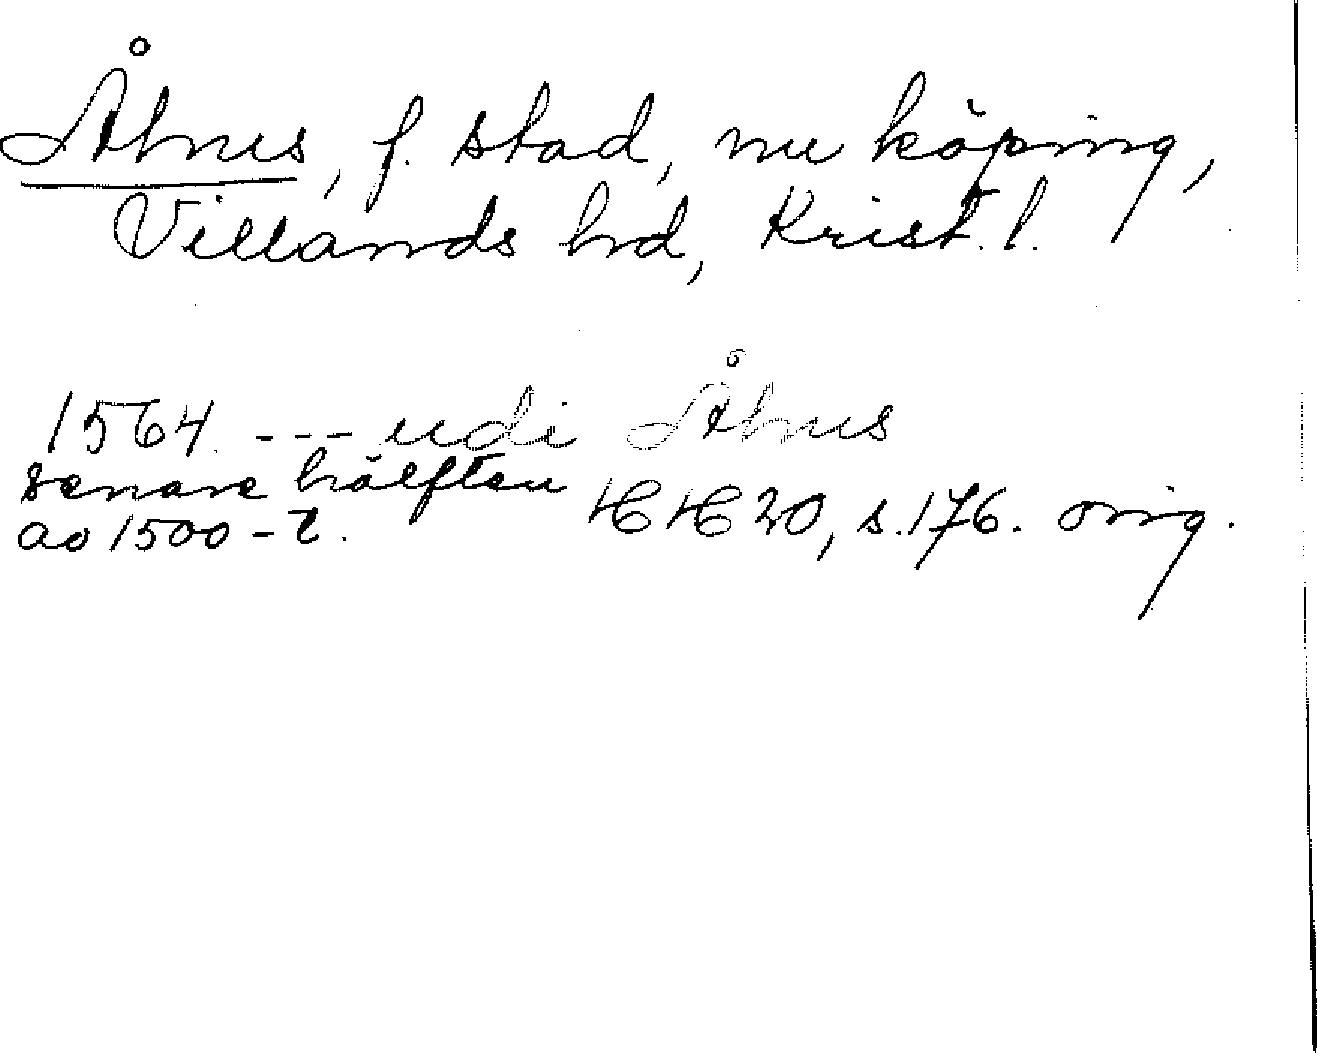 Åhus, f. stad, nu köping,
Villands hd, Krist. l.
1564. --- udi Åhus
senare hälften
av 1500-t.
HH 20, s. 176. orig.